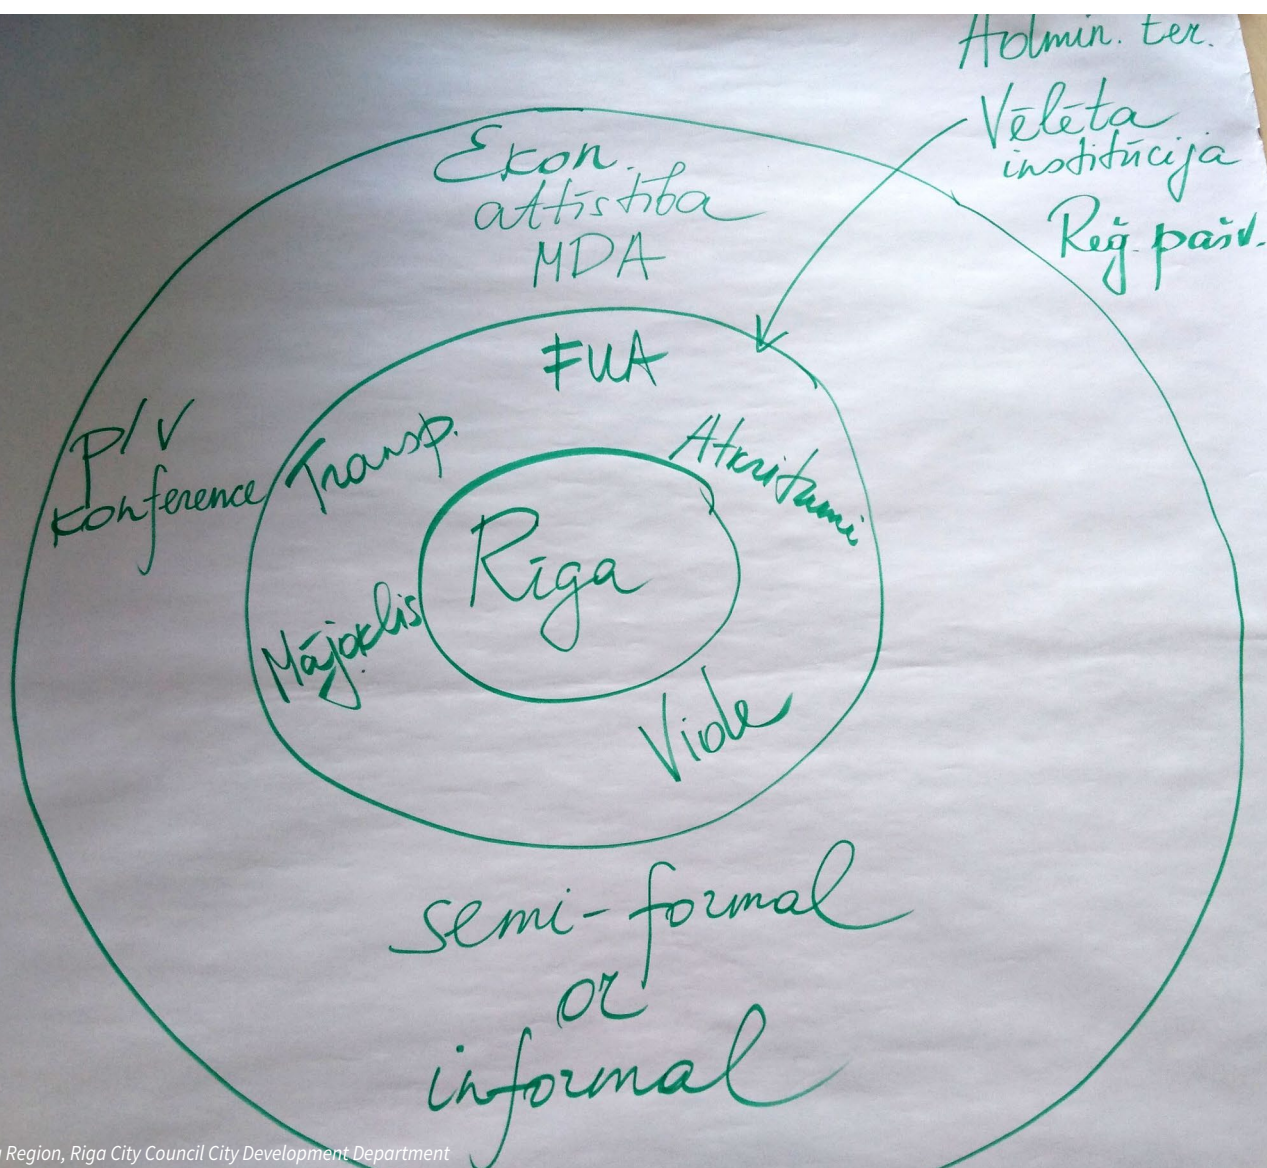 Admin. ter.
Vēlēta
institūcija
Reģ. pašv.
Ekon.
attīstība
MDA
FUA
P/V
konference
Transp.
Atkritumi
Rīga
Mājoklis
Vide
semi-formal
or
informal
Region, Riga City Council City Development Department